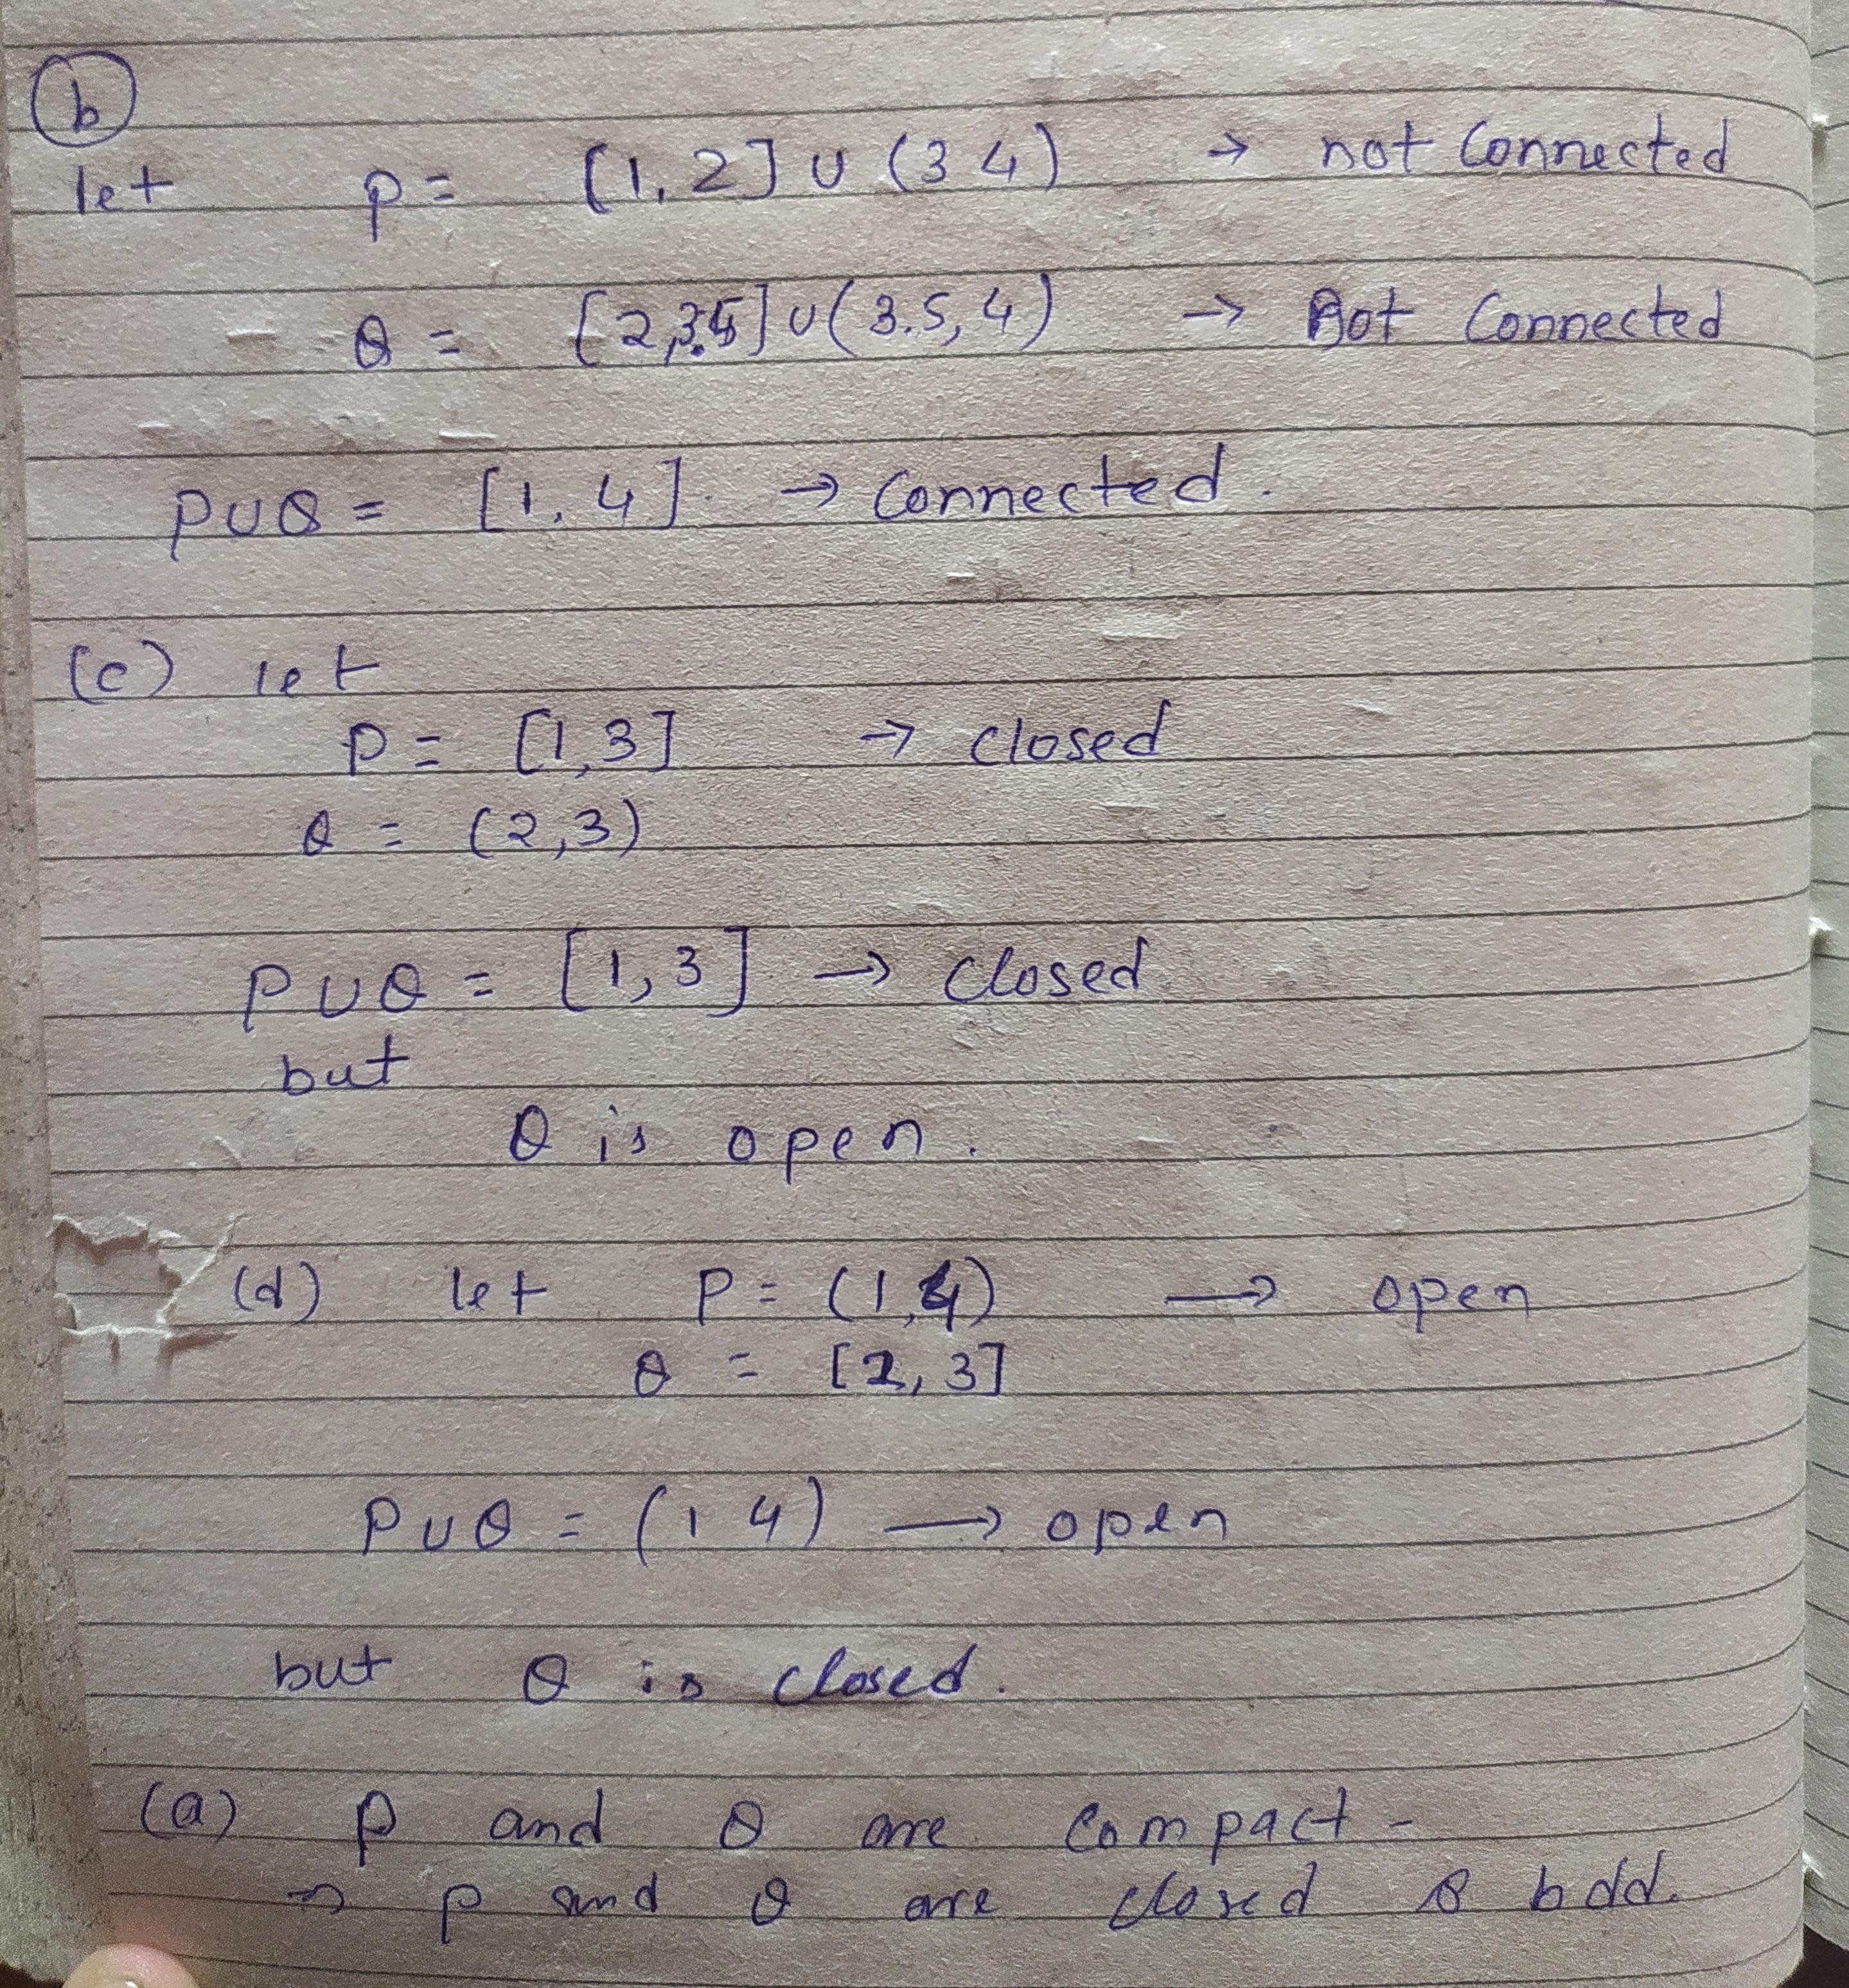 (b)
let P = [1, 2] ∪ (3 4) → not Connected
Q = [2,3.5] ∪ (3.5, 4) → Not Connected
P∪Q = [1, 4] → Connected.
(c) let
P = [1,3] → closed
Q = (2,3)
P∪Q = [1,3] → closed
but
Q is open.
(d) let P = (1,4) → open
Q = [2, 3]
P∪Q = (1 4) → open
but Q is closed.
(a) P and Q are Compact -
⇒ P and Q are closed & bdd.